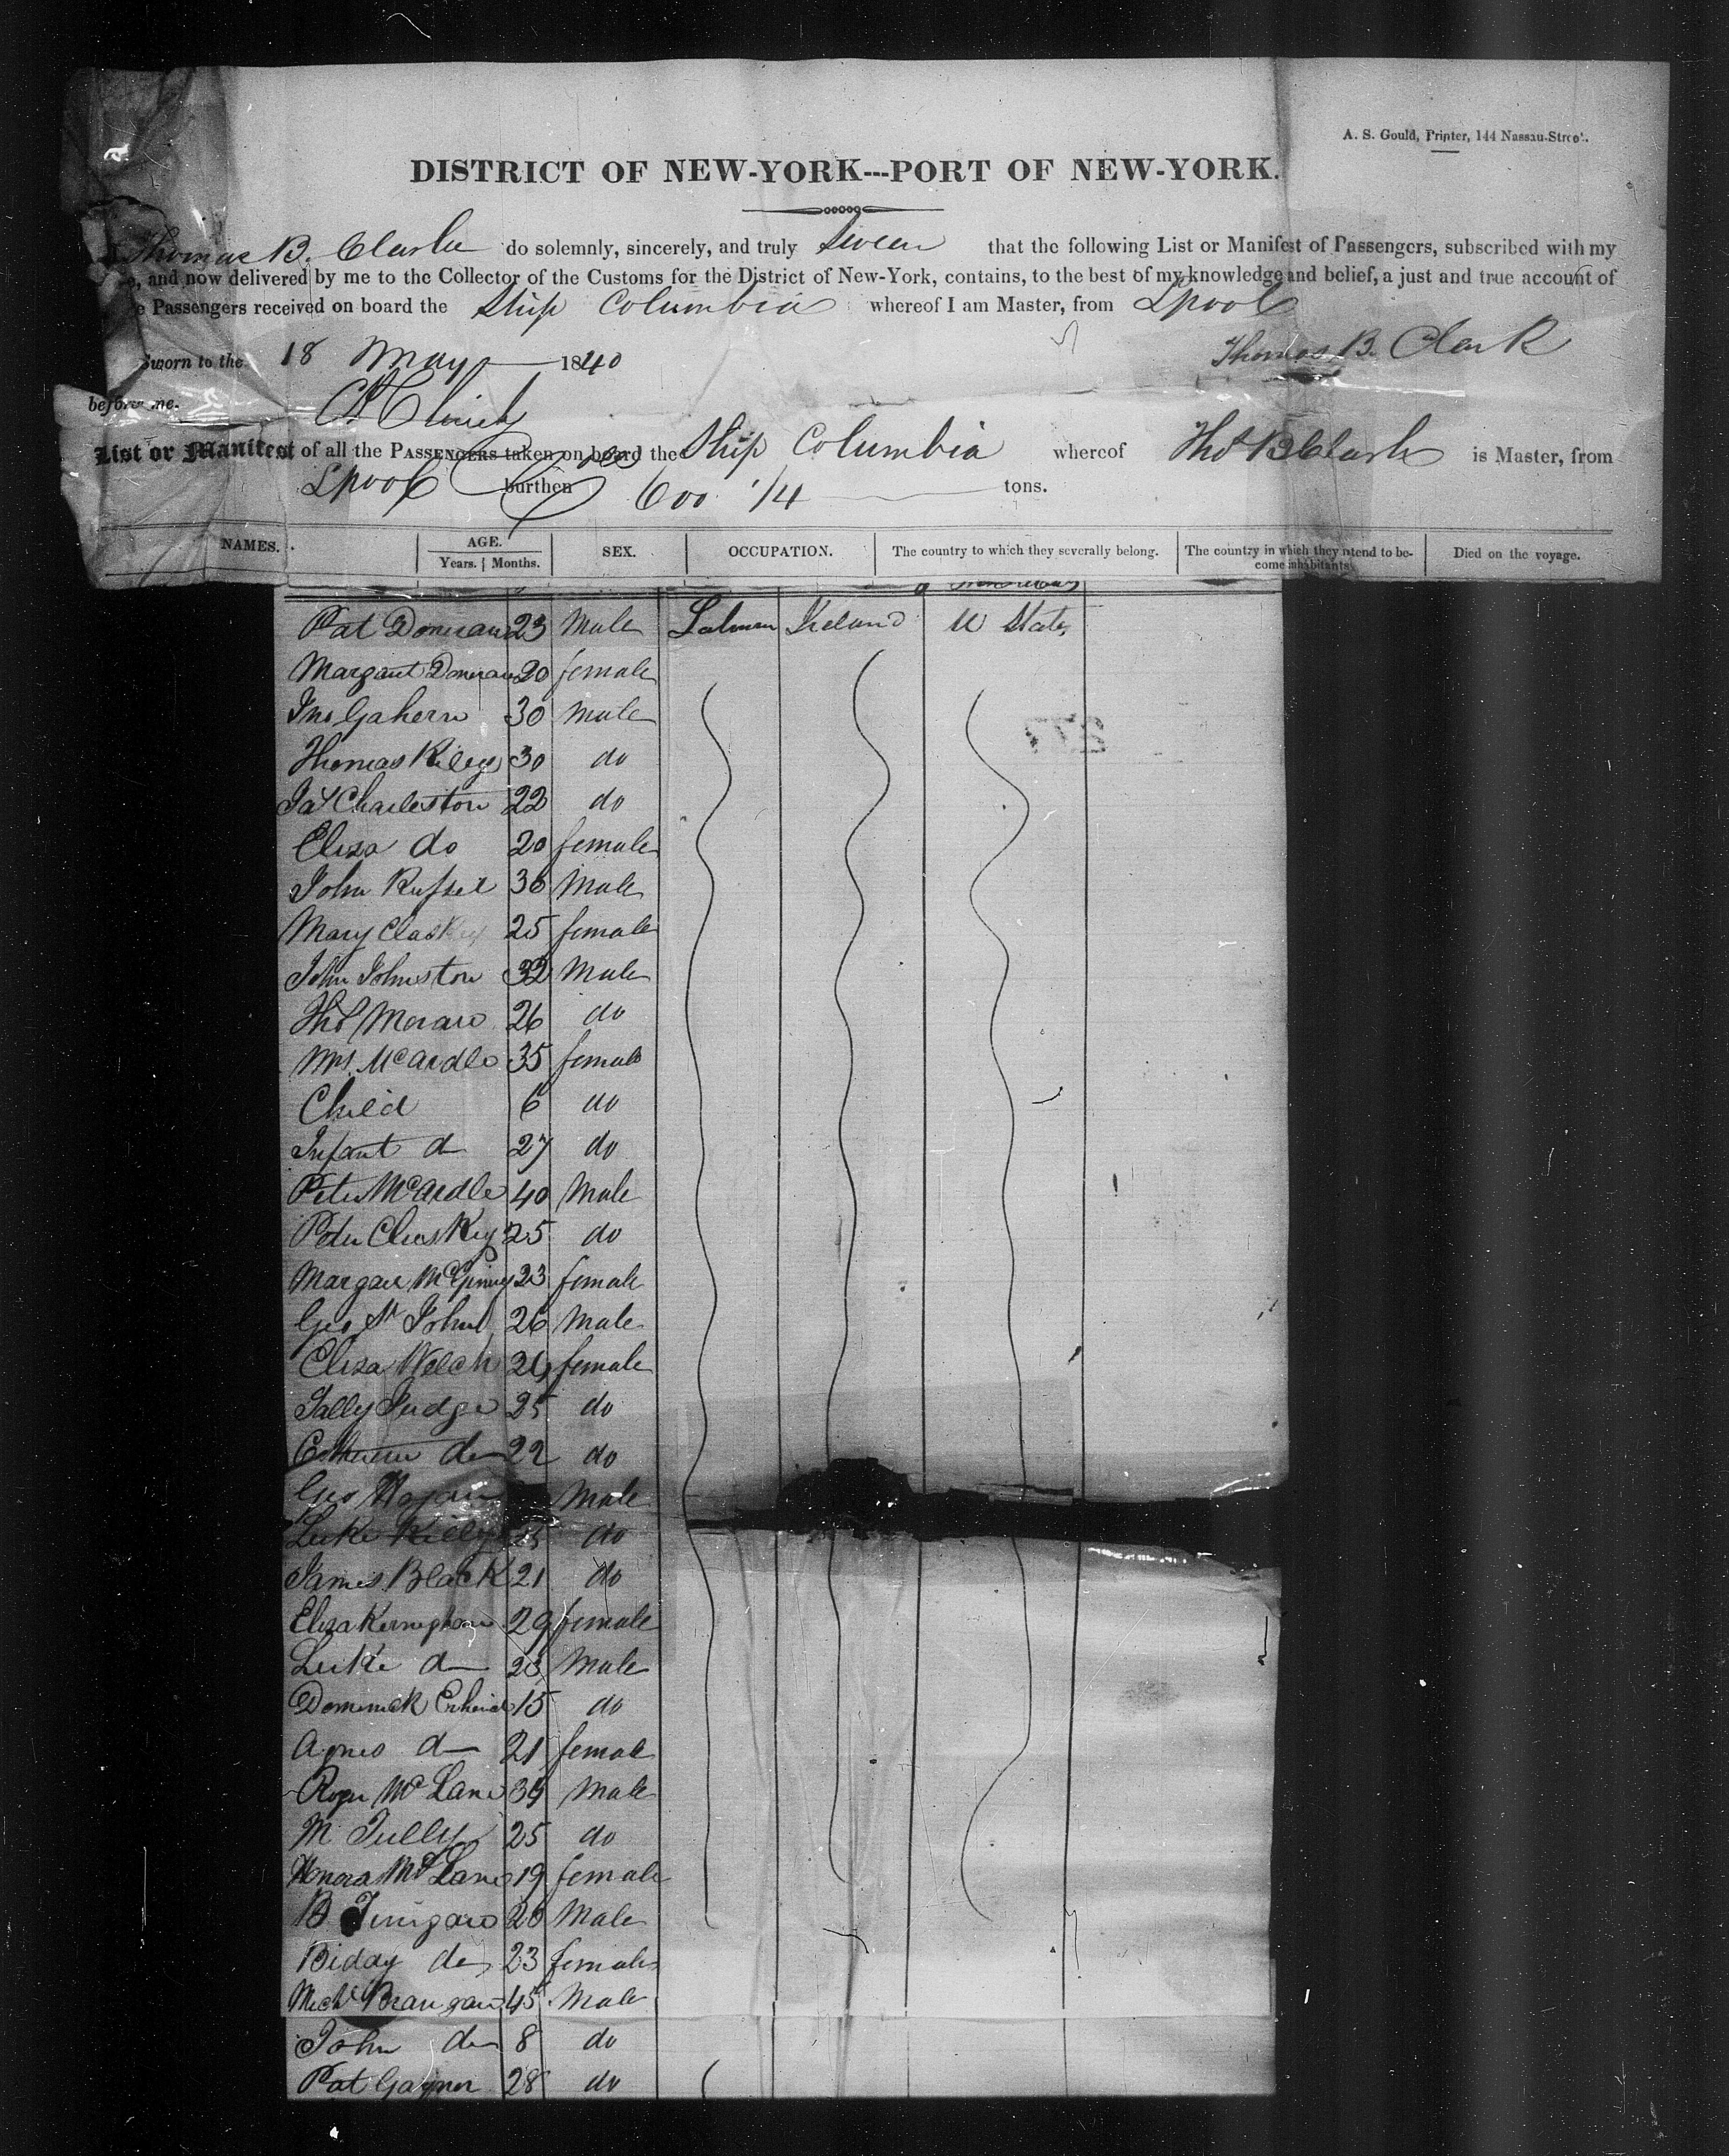 A. S. Gould, Printer, 144 Nassau-Street.
DISTRICT OF NEW-YORK---PORT OF NEW-YORK.
Thomas B. Clarke do solemnly, sincerely, and truly swear that the following List or Manifest of Passengers, subscribed with my
and now delivered by me to the Collector of the Customs for the District of New-York, contains, to the best of my knowledge and belief, a just and true account of
Passengers received on board the Ship Columbia whereof I am Master, from Lpool
Sworn to the 18 May 1840
Thomas B. Clark
before me.
List or Manifest of all the PASSENGERS taken on board the Ship Columbia whereof Thos B Clark is Master, from
Lpool burthen 600 1/4 tons.
NAMES. AGE. Years. Months. SEX. OCCUPATION. The country to which they severally belong. The country in which they intend to become inhabitants. Died on the voyage.
Pat Donevan 23 Male Ireland U States
Margaret Donevan 20 female
Jno Gahern 30 Male
Thomas Riley 30 do
Jas Charleston 22 do
Eliza do 20 female
John Russel 30 Male
Mary Claskey 25 female
John Johnston 32 Male
Thos Moran 26 do
Mrs. McArdle 35 female
Child 6 do
Infant do 27 do
Peter McArdle 40 Male
Peter Cluskey 25 do
Margaret McGinney 23 female
Geo St John 26 Male
Eliza Welch 26 female
Tally Judge 25 do
do 22 do
Geo Male
Luke Kelly 25 do
James Black 21 do
Eliza Kernaghan 29 female
Luke do 23 Male
Dominick 15 do
Agnes do 21 female
Roger McLane 34 Male
M Tully 25 do
Honora McLane 19 female
B Finigan 26 Male
Biddy do 23 female
Michl Branigan 45 Male
John do 8 do
Pat Gaynor 28 do